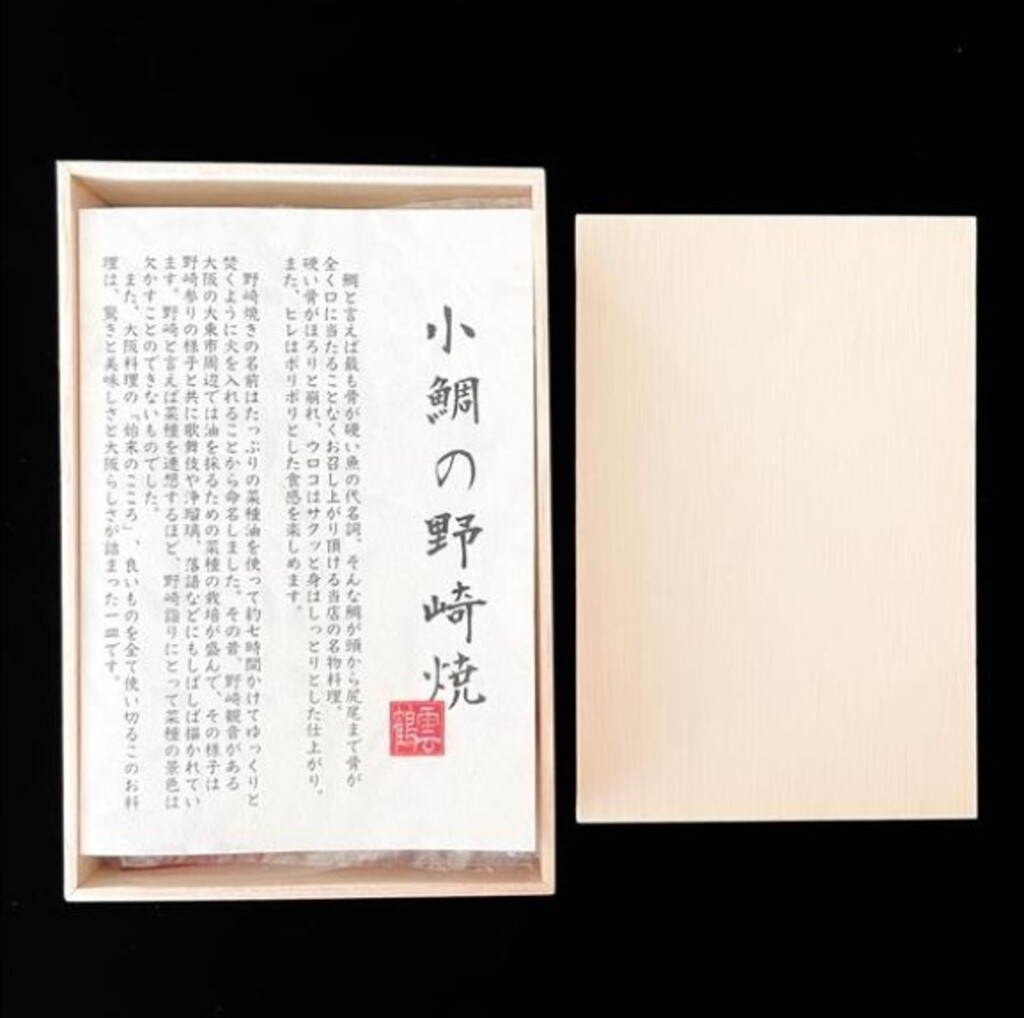 小鯛の野崎焼
雲鶴
鯛と言えば最も骨が硬い魚の代名詞。そんな鯛が頭から尻尾まで骨が
全く口に当たることなくお召し上がり頂ける当店の名物料理。
硬い骨がほろりと崩れ、ウロコはサクッと身はしっとりとした仕上がり。
また、ヒレはポリポリとした食感を楽しめます。
野崎焼きの名前はたっぷりの菜種油を使って約七時間かけてゆっくりと
焚くように火を入れることから命名しました。その昔、野崎観音がある
大阪の大東市周辺では油を採るための菜種の栽培が盛んで、その様子は
野崎参りの様子と共に歌舞伎や浄瑠璃、落語などにもしばしば描かれてい
ます。野崎と言えば菜種を連想するほど、野崎詣りにとって菜種の景色は
欠かすことのできないものでした。
また、大阪料理の「始末のこころ」、良いものを全て使い切るこのお料
理は、驚きと美味しさと大阪らしさが詰まった一皿です。